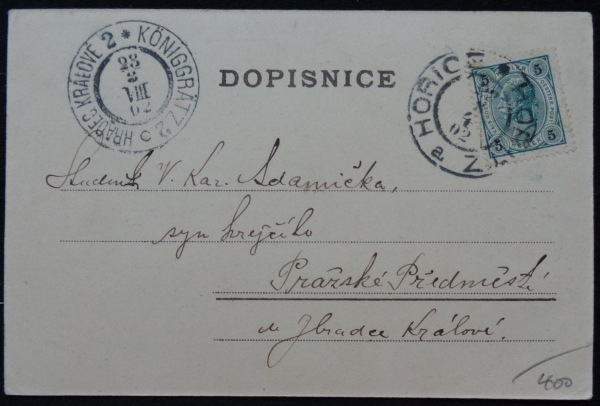 HRADEC KRÁLOVÉ 2 * KÖNIGGRÄTZ 2
23
VIII
02
c
DOPISNICE
HOŘICE
a
5 5
5 5
Student V. Kar. Adamička,
syn krejčího
Pražské Předměstí
Hradec Králové.
400